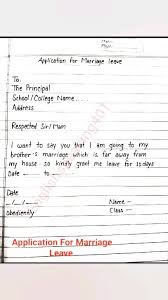 Application for Marriage leave
To
The Principal
School/College Name....
Address
Respected Sir/Mam
I want to say you that I am going to my
brother's marriage which is far away from
my house so kindly grant me leave for 10 days
Date - to -
Date
_/_/_ Name -
Obediently Class -
Application For Marriage
Leave